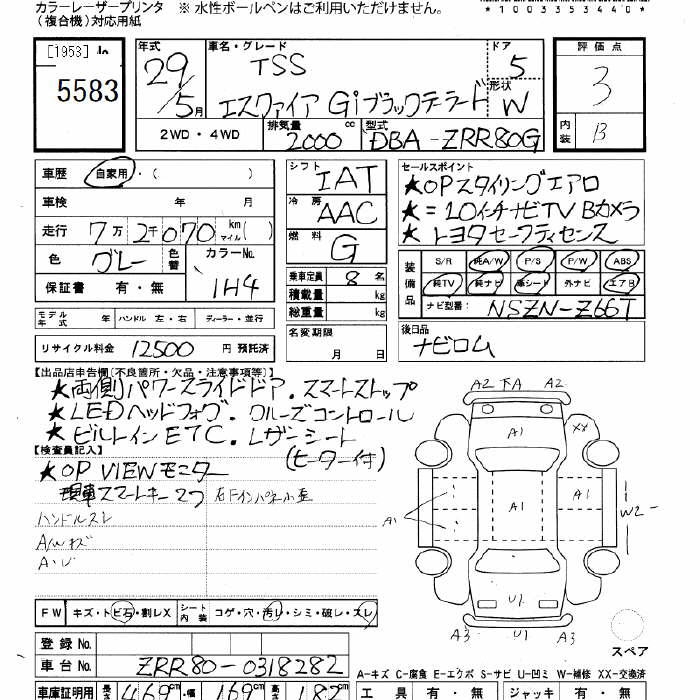 カラーレーザープリンタ ※ 水性ボールペンはご利用いただけません。
(複合機)対応用紙
*1003534 4 0*
[1953]
5583
年式
29/5月
車名・グレード
TSS
エスクァイア Giブラックテーラード
ドア
5
形状
W
評価点
3
内装
B
2WD・4WD
排気量
2000 cc
型式
DBA-ZRR80G
車歴 自家用・( )
車検 年 月
走行 7万2千070 km(マイル)
色 グレー 色替 カラーNo. 1H4
保証書 有・無
モデル年式 年 ハンドル 左・右 ディーラー・並行
リサイクル料金 12500 円 預託済
シフト IAT
冷房 AAC
燃料 G
乗車定員 8 名
積載量 kg
総重量 kg
名変期限
月 日
セールスポイント
★OPスタイリングエアロ
★=10インチナビTV Bカメラ
★トヨタセーフティセンス
装備品
S/R 純A/W P/S P/W ABS
純TV 純ナビ 革シート 外ナビ エアB
ナビ型番: NSZN-Z66T
後日品
ナビロム
【出品店申告欄(不良箇所・欠品・注意事項等)】
★両側パワースライドドア.スマートストップ
★LEDヘッドフォグ.クルーズコントロール
★ビルトインETC.レザーシート
(ヒーター付)
【検査員記入】
★OP VIEWモニター
現車スマートキー2ケ
ハンドルスレ
A/Wキズ
FW キズ・トビ石・割レX シート内装 コゲ・穴・汚レ・シミ・破レ・スレ
登録 No.
車台 No. ZRR80-0318282
車庫証明用 長さ 469cm・幅 169cm 高さ 182cm
A2 下A A2
A1
XX
A1
A1
A1
W2
U1
A3
U1
A3
スペア
A-キズ C-腐食 E-エクボ S-サビ U-凹ミ W-補修 XX-交換済
工具 有・無 ジャッキ 有・無